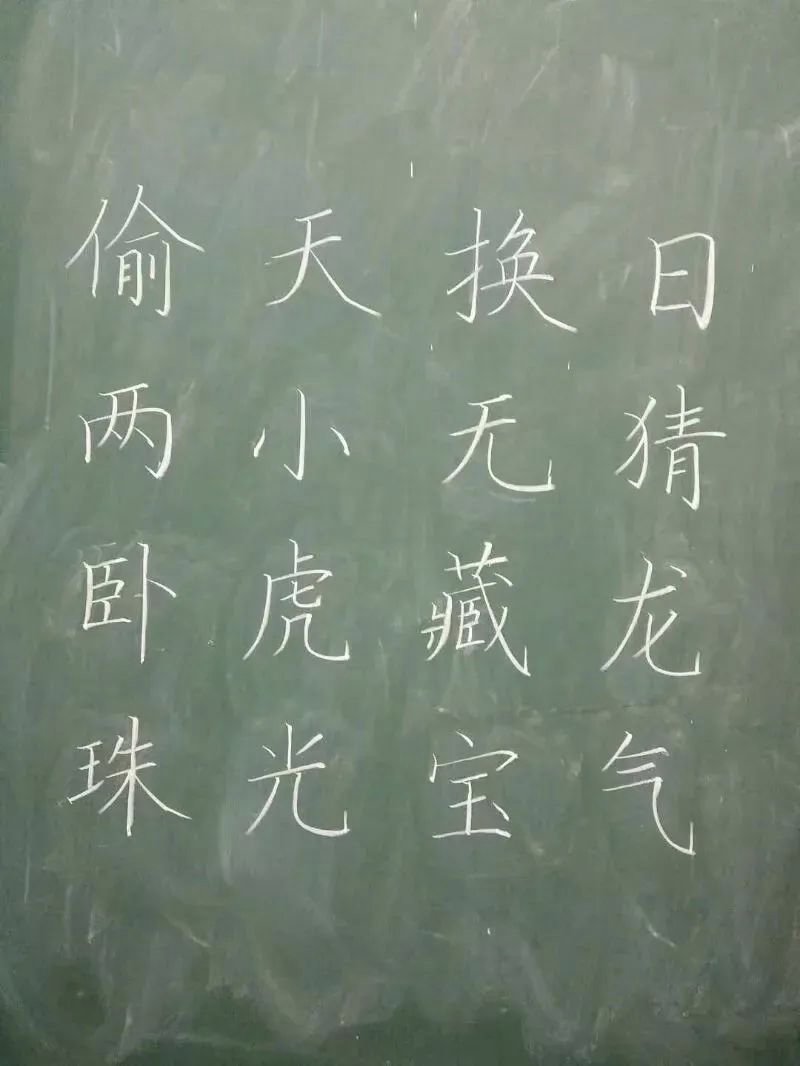 偷天换日
两小无猜
卧虎藏龙
珠光宝气